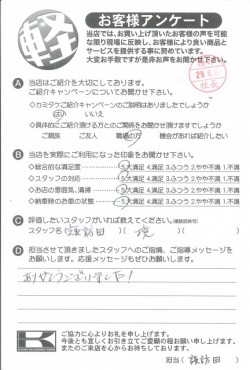 軽
お客様アンケート
当店では、お買い上げ頂いたお客様の声を可能
な限り現場に反映し、お客様により良い商品と
サービスを提供する事に努めています。
大変お手数ですが是非お声をお聞かせ下さい。
A 当店はご紹介を大切にしております。
ご紹介キャンペーンについてお聞かせ下さい。
◇カミタケご紹介キャンペーンのご説明はありましたでしょうか
はい いいえ
◇具体的にご紹介頂ける方とのご関係をお聞かせ頂けますでしょうか
ご親族 ご友人 職場の方 機会があれば紹介したい
B 当店を実際にご利用になった印象をお聞かせ下さい。
◇総合的な満足度 5.大満足 4.満足 3.ふつう 2.やや不満 1.不満
◇スタッフの対応 5.大満足 4.満足 3.ふつう 2.やや不満 1.不満
◇お店の雰囲気、清掃 5.大満足 4.満足 3.ふつう 2.やや不満 1.不満
◇納車時のお車の状態 5.大満足 4.満足 3.ふつう 2.やや不満 1.不満
C 評価したいスタッフがいれば教えてください。(複数回答可)
スタッフ名 諏訪田
D 担当させて頂きましたスタッフへのご指摘、ご指導メッセージを
お願いします。応援メッセージもぜひお願いします。
ありがとうございました!
K
ご協力に心よりお礼を申し上げます。
今後とも宜しくお引き立てご愛顧の程お願い申し上げます。
またのご来店を心からお待ちしております。
担当(諏訪田)